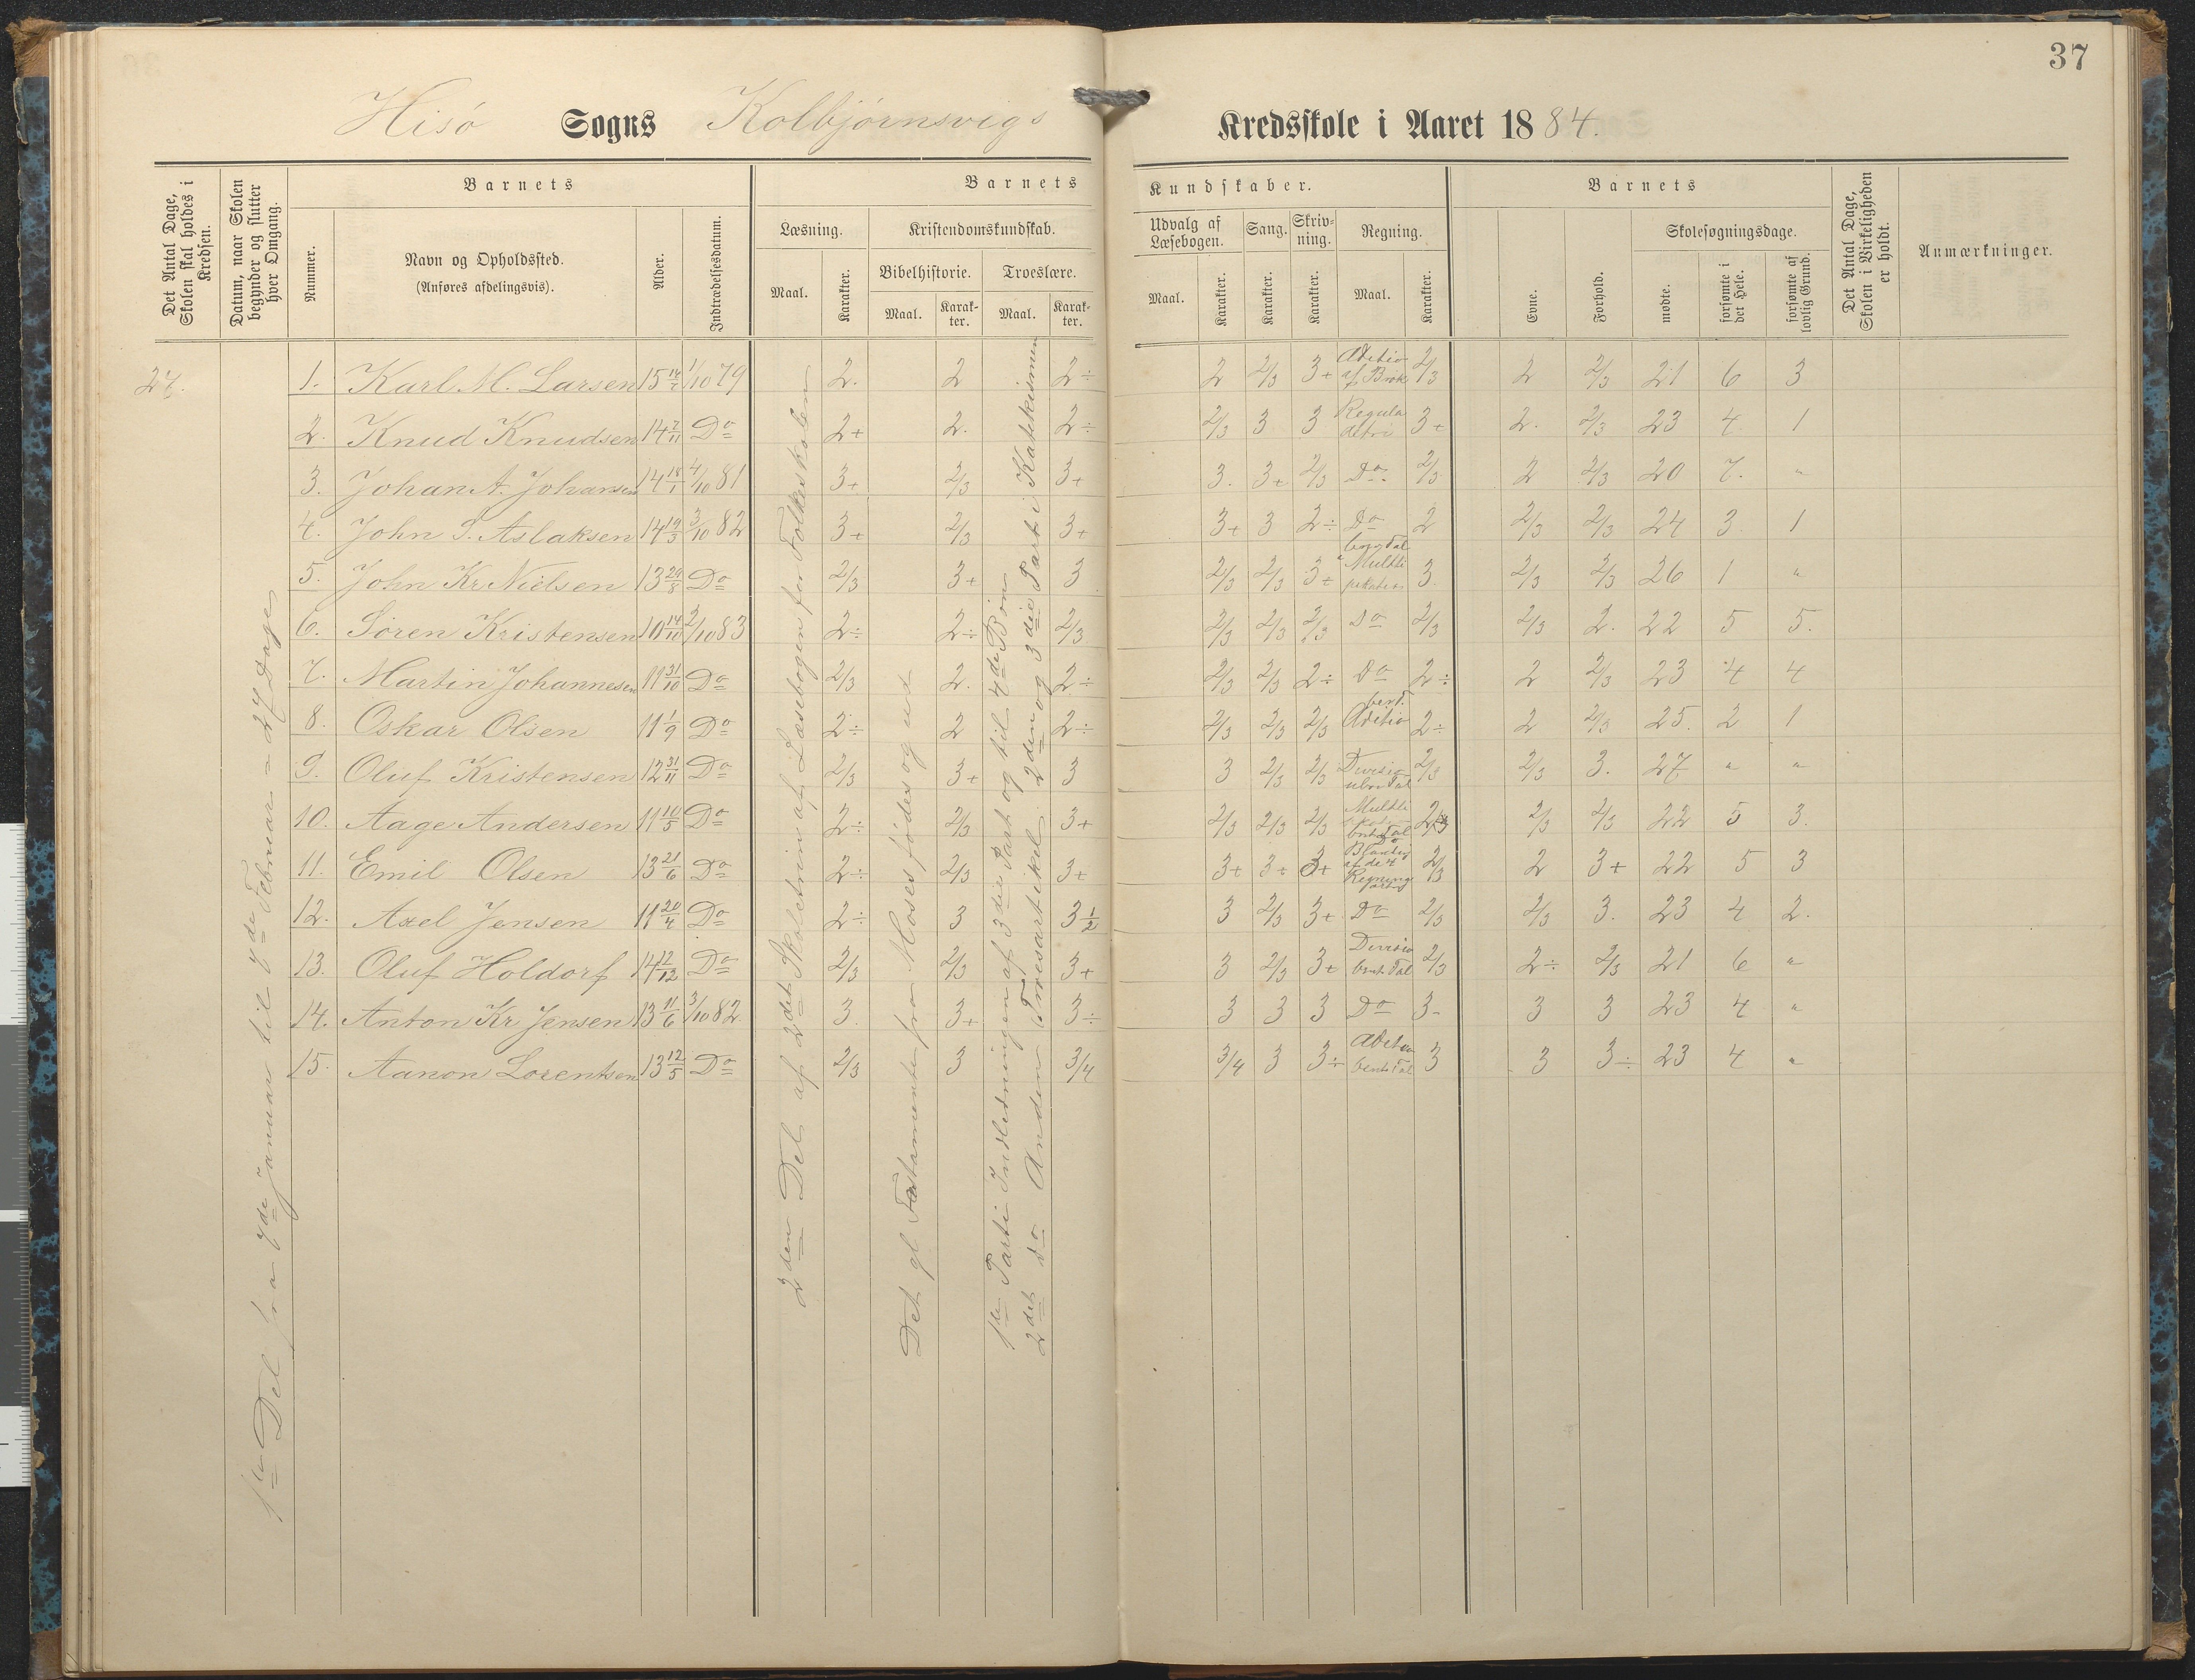 37
Hisö Sogns Kolbjörnsvigs Kredsskole i Aaret 1884.
Det Antal Dage, Skolen skal holdes i Kredsen.
Datum, naar Skolen begynder og slutter hver Omgang.
Barnets
Nummer.
Navn og Opholdssted.
(Anføres afdelingsvis).
Alder.
Indtrædelsesdatum.
Barnets Kundskaber.
Læsning.
Maal.
Karakter.
Kristendomskundskab.
Bibelhistorie.
Maal.
Karakter.
Troeslære.
Maal.
Karakter.
Udvalg af Læsebogen.
Maal.
Karakter.
Sang.
Karakter.
Skrivning.
Karakter.
Regning.
Maal.
Karakter.
Barnets
Evne.
Forhold.
Skolesøgningsdage.
mødte.
forsømte i det Hele.
forsømte af lovlig Grund.
Det Antal Dage, Skolen i Virkeligheden er holdt.
Anmærkninger.
27.
1ste Del fra 7de Januar til 7de Februar = 27 Dage
2den Del af 2det Skoletrin af Læsebogen for Folkeskolen
Det gl Testamente fra Moses födes og ud
1ste Parti Indledningen af 3die Part og til 4de Bön
2det Do Anden Troesartikel. 2den og 3die Part i Katekismen
1. Karl M. Larsen 15 14/7 1/10 79 2. 2 2÷ 2 2/3 3+ Adition af Brök 2/3 2 2/3 21 6 3
2. Knud Knudsen 14 7/11 Do 2+ 2. 2÷ 2/3 3 3 Regula detri 3+ 2. 2/3 23 4 1
3. Johan A. Johansen 14 18/1 4/10 81 3+ 2/3 3+ 3. 3+ 2/3 Do 2/3 2 2/3 20 7. "
4. John S. Aslaksen 14 19/3 3/10 82 3+ 2/3 3+ 3+ 3 2÷ Do 2 2/3 2/3 24 3 1
5. John Kr Nielsen 13 29/8 Do 2/3 3+ 3 2/3 2/3 3+ Multiplikation 3 2/3 2/3 26 1 "
6. Sören Kristensen 10 14/10 2/10 83 2÷ 2÷ 2/3 2/3 2/3 2/3 Do 2/3 2/3 2. 22 5 5.
7. Martin Johannesen 11 31/10 Do 2/3 2. 2÷ 2/3 2/3 2÷ Do 2÷ 2 2/3 23 4 4
8. Oskar Olsen 11 1/9 Do 2÷ 2 2÷ 2/3 2/3 2/3 Adition 2÷ 2 2/3 25. 2 1
9. Oluf Kristensen 12 31/11 Do 2/3 3+ 3 3 2/3 2/3 Division 2/3 2/3 3. 27 " "
10. Aage Andersen 11 10/5 Do 2÷ 2/3 3+ 2/3 2/3 2/3 2/3 2/3 2/3 22 5 3.
11. Emil Olsen 13 21/6 Do 2÷ 2/3 3+ 3+ 3+ 3+ af de 4 Regning 2/3 2 3+ 22 5 3
12. Axel Jensen 11 20/4 Do 2÷ 3 3 1/2 3 2/3 3+ Do 2/3 2/3 3. 23 4 2.
13. Oluf Holdorf 14 12/12 Do 2/3 2/3 3+ 3 2/3 3+ Division Tal 2/3 2÷ 2/3 21 6 "
14. Anton Kr Jensen 13 11/6 3/10 82. 3 3+ 3÷ 3 3 3 Do 3- 3 3 23 4 "
15. Aanon Lorentsen 13 12/5 Do 2/3 3 3/4 3/4 3 3÷ Adition Tal 3 3 3÷ 23 4 "